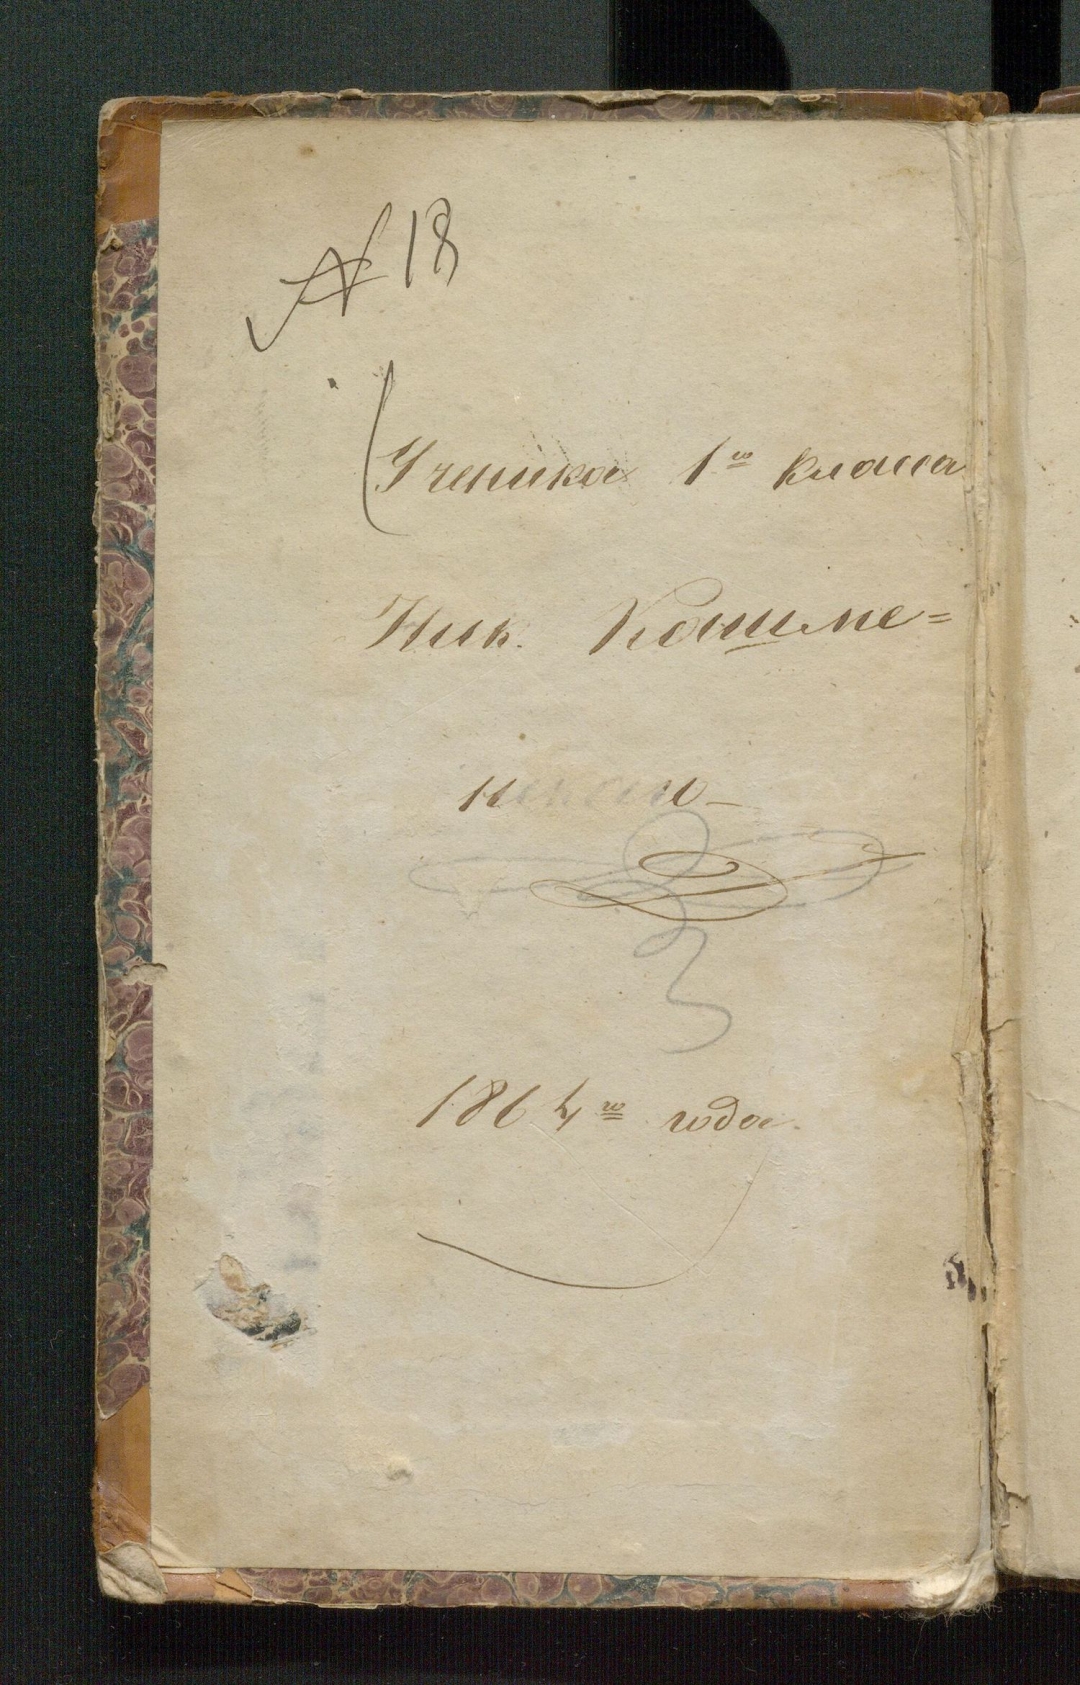 № 18
Ученика 1го класса
Ник. Кошме=
1864го года.